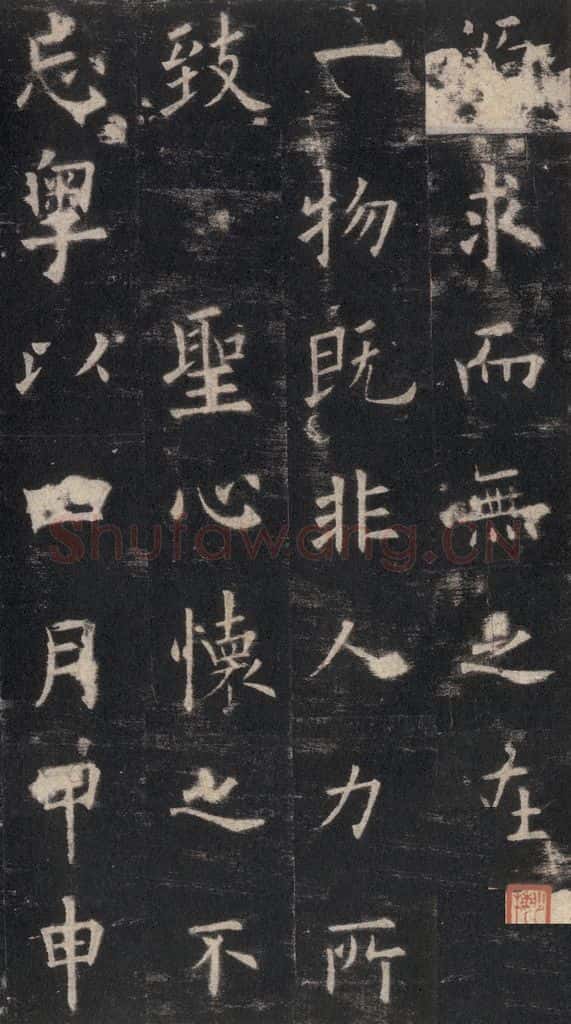 求而無之在
一物既非人力所
致聖心懷之不
忘粤以四月甲申
Shufawang.CN